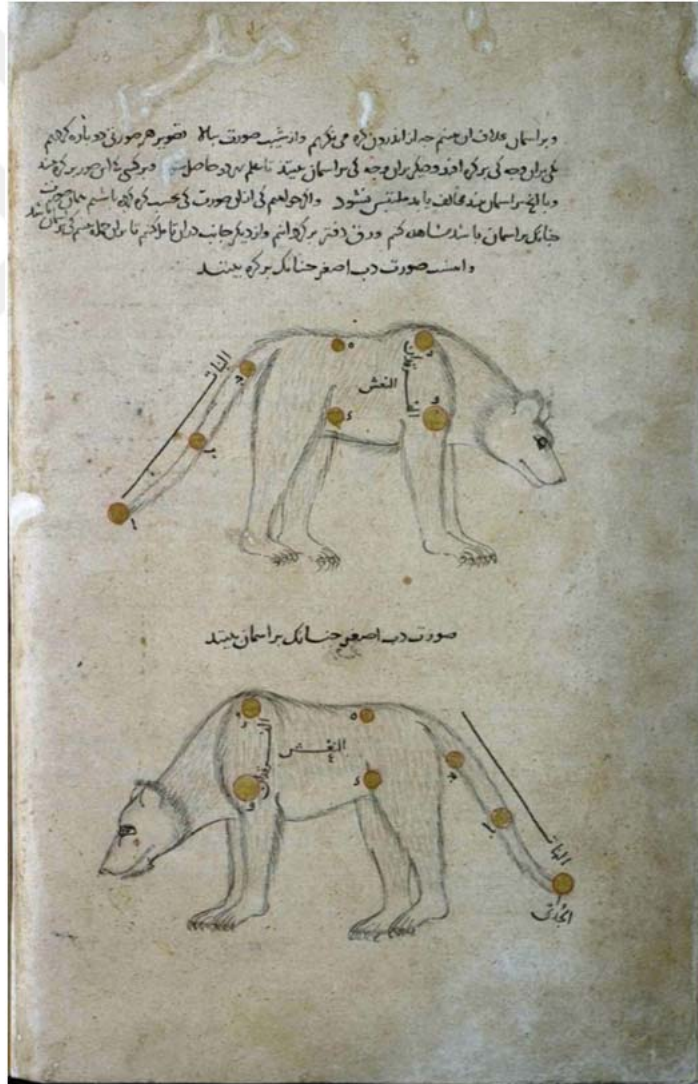 و بر اسمان علاف ان جه از اندرون کره می نکریم و از شیب صورت ببالا تصویر هر صورتی دو باره کردیم
یکی بران وجه کی بر کره افتد و دیکر بران وجه کی بر اسمان بینند تا علم بهر دو حاصل شود و
و بر اسمان مخالف یابد ملتبس نشود و اکر خواهیم کی ازان صورت کی بحسب کره باشد همان صورت
جنانک بر اسمان باشد مشاهده کنیم ورق دفتر بر کردانیم و از دیکر جانب دران تامل کنیم تا بران جمله بینیم کی بر اسمان باشد
و اینست صورت دب اصغر جنانک بر کره بینند
البنات
النعش
الفرقدان
ا
ب
ج
د
ه
و
ز
صورت دب اصغر جنانک بر اسمان بینند
الفرقدان
النعش
البنات
الجدی